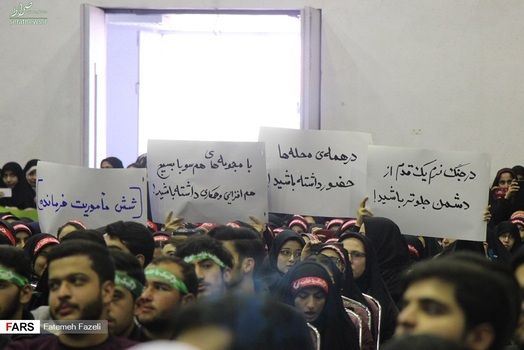 در جنگ نرم یک قدم از
دشمن جلوتر باشید!
در همه‌ی محله‌ها
حضور داشته باشید!
با مجموعه‌های هم‌سو با بسیج
هم‌افزایی و همکاری داشته باشید!
[شش مأموریت فرمانده]
FARS
Photo: Fatemeh Fazeli